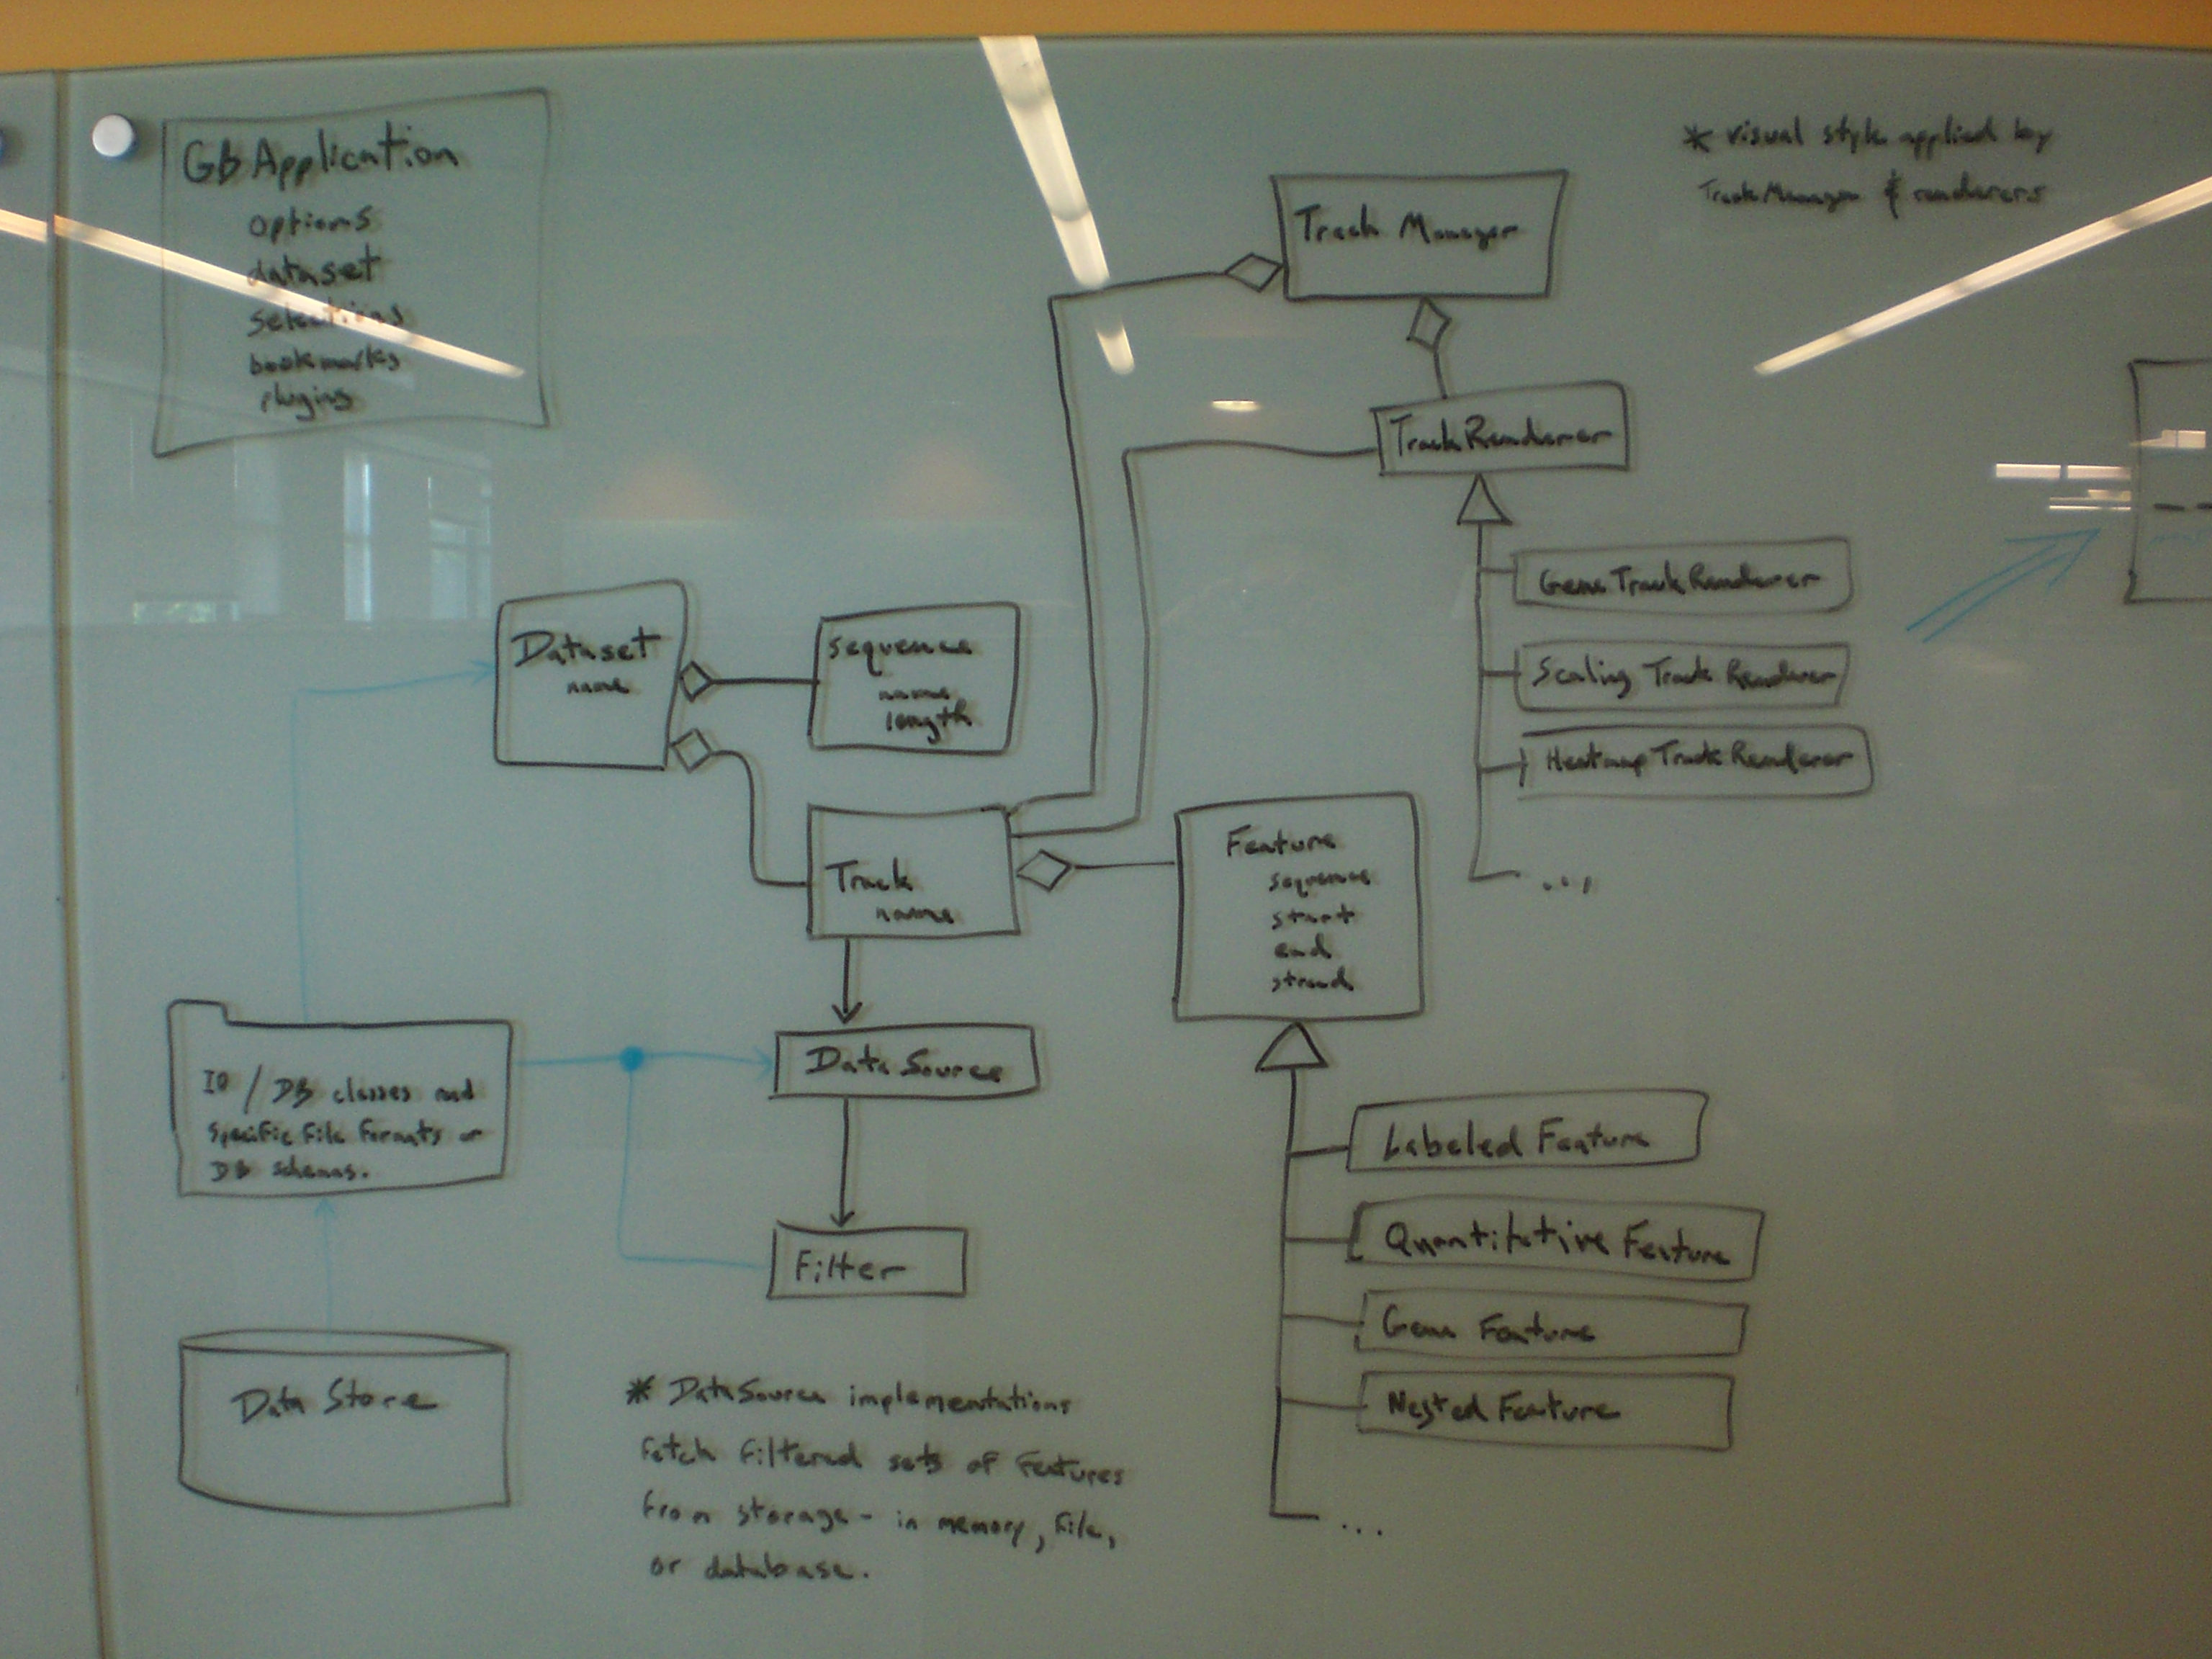 GbApplication
options
dataset
selections
bookmarks
plugins
* visual style applied by
TrackManager & renderers
Track Manager
TrackRenderer
GeneTrackRenderer
Scaling Track Renderer
Heatmap Track Renderer
...
Dataset
name
sequence
name
length
Track
name
Feature
sequence
start
end
strand
IO / DB classes and
specific file formats or
DB schemas.
Data Source
Filter
Labeled Feature
Quantitative Feature
Gene Feature
Nested Feature
...
Data Store
* DataSource implementations
fetch filtered sets of features
from storage - in memory, file,
or database.